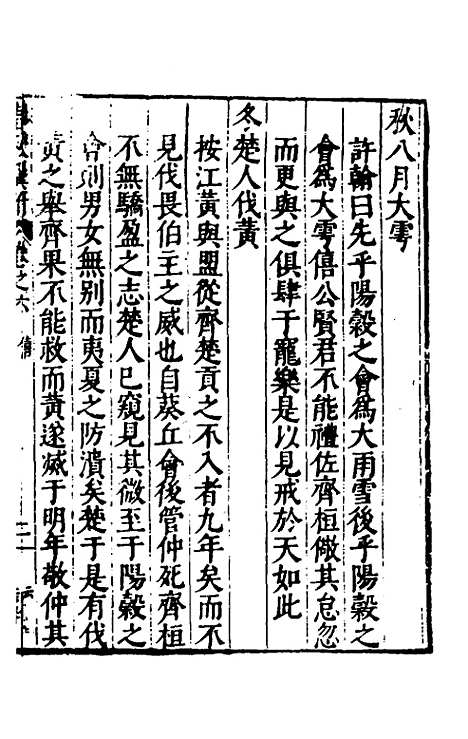 秋八月大雩
許翰曰先乎陽穀之會為大雨雪後乎陽穀之
會為大雩僖公賢君不能禮佐齊桓儆其怠忽
而更與之俱肆于寵樂是以見戒於天如此
冬楚人伐黃
按江黃與盟從齊楚貢之不入者九年矣而不
見伐畏伯主之威也自葵丘會後管仲死齊桓
不無驕盈之志楚人已窺見其微至于陽穀之
會則男女無别而夷夏之防潰矣楚于是有伐
黃之舉齊果不能救而黃遂滅于明年敬仲其
卷之六 僖